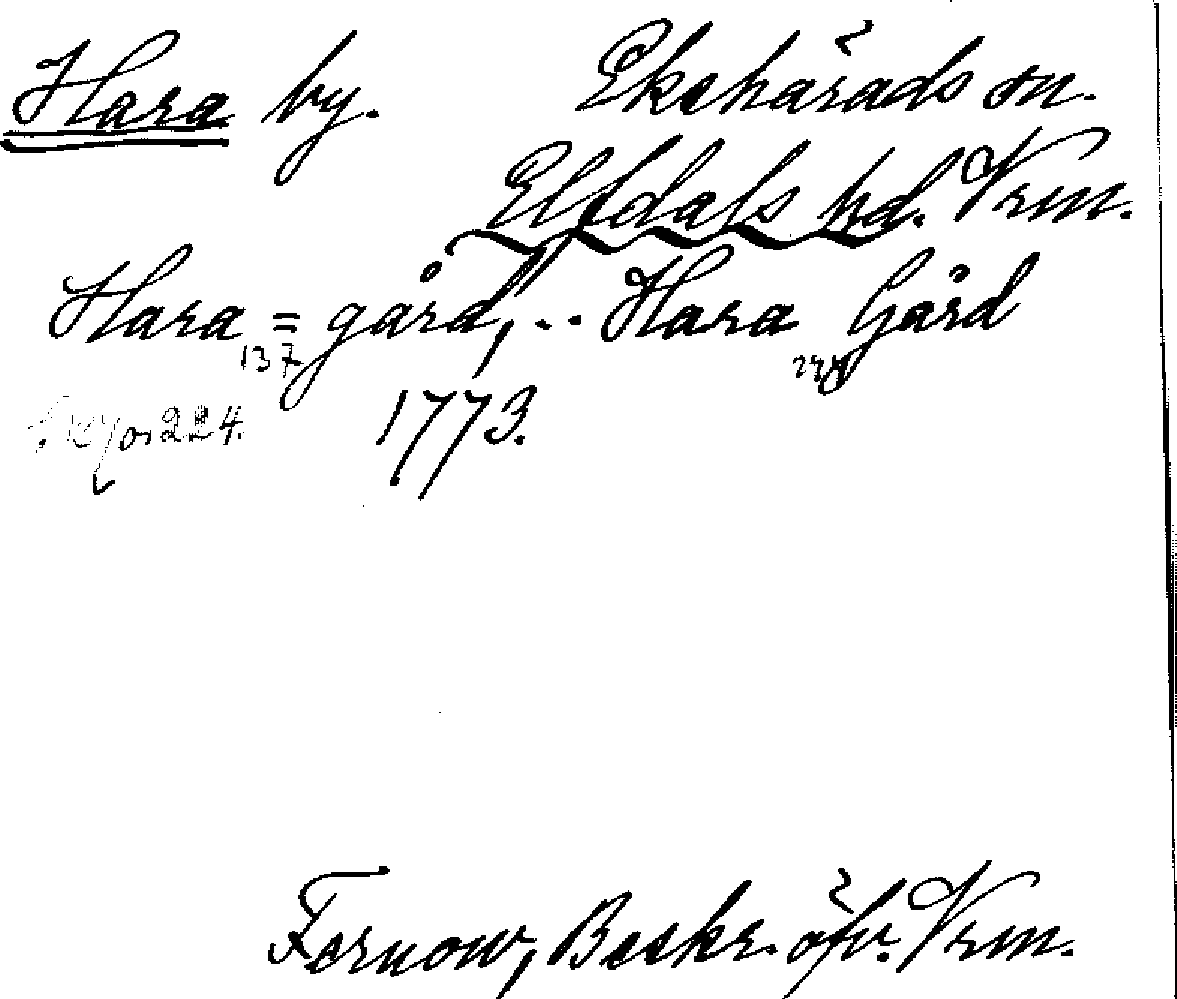 Hara by. Ekshärads sn.
Elfdals hd. Vrm.
Hara = gård, .. Hara Gård
137
224. 1773.
Fernow, Beskr. öfv. Vrm.